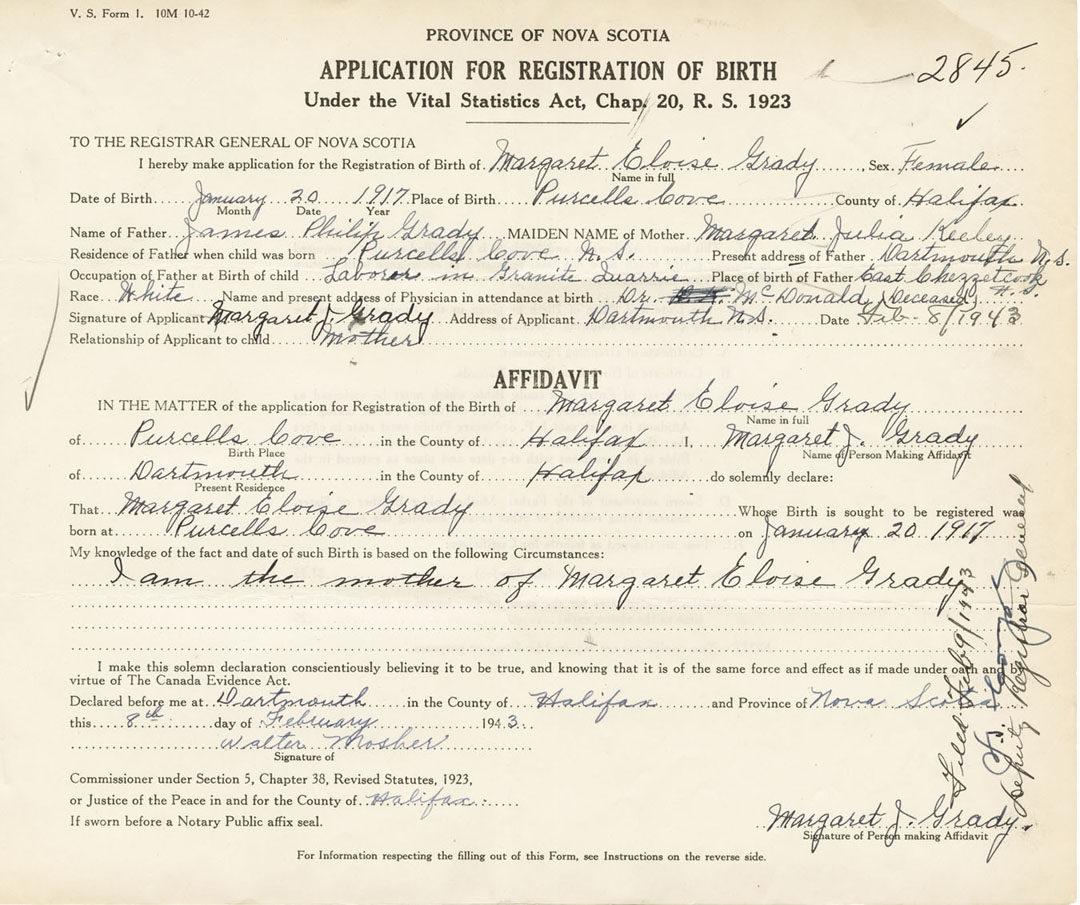 V. S. Form 1. 10M 10-42
PROVINCE OF NOVA SCOTIA
2845.
APPLICATION FOR REGISTRATION OF BIRTH
Under the Vital Statistics Act, Chap. 20, R. S. 1923
TO THE REGISTRAR GENERAL OF NOVA SCOTIA
I hereby make application for the Registration of Birth of Margaret Eloise Grady, Sex Female
Name in full
Date of Birth January 20 1917 Place of Birth Purcells Cove County of Halifax
Month Date Year
Name of Father James Philip Grady MAIDEN NAME of Mother Margaret Julia Keeley
Residence of Father when child was born Purcells Cove N.S. Present address of Father Dartmouth N.S.
Occupation of Father at Birth of child Laborer in Granite Quarrie Place of birth of Father East Chezzetcook N.S.
Race White Name and present address of Physician in attendance at birth Dr. McDonald (Deceased)
Signature of Applicant Margaret J. Grady Address of Applicant Dartmouth N.S. Date Feb - 8/1943
Relationship of Applicant to child Mother
AFFIDAVIT
IN THE MATTER of the application for Registration of the Birth of Margaret Eloise Grady
Name in full
of Purcells Cove in the County of Halifax I, Margaret J. Grady
Birth Place Name of Person Making Affidavit
of Dartmouth in the County of Halifax do solemnly declare:
Present Residence
That Margaret Eloise Grady Whose Birth is sought to be registered was
born at Purcells Cove on January 20 1917
My knowledge of the fact and date of such Birth is based on the following Circumstances:
I am the mother of Margaret Eloise Grady
I make this solemn declaration conscientiously believing it to be true, and knowing that it is of the same force and effect as if made under oath and by
virtue of The Canada Evidence Act.
Declared before me at Dartmouth in the County of Halifax and Province of Nova Scotia
this 8th day of February 1943.
Walter Mosher
Signature of
Commissioner under Section 5, Chapter 38, Revised Statutes, 1923,
or Justice of the Peace in and for the County of Halifax
If sworn before a Notary Public affix seal.
Margaret J. Grady.
Signature of Person making Affidavit
For Information respecting the filling out of this Form, see Instructions on the reverse side.
Filed Feb 9/1943
Deputy Registrar General